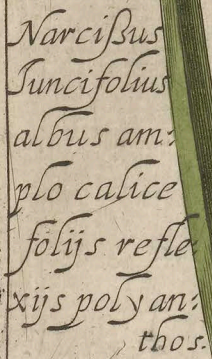 Narcißus
Iuncifolius
albus am:
plo calice
folijs refle:
xijs polyan:
thos.